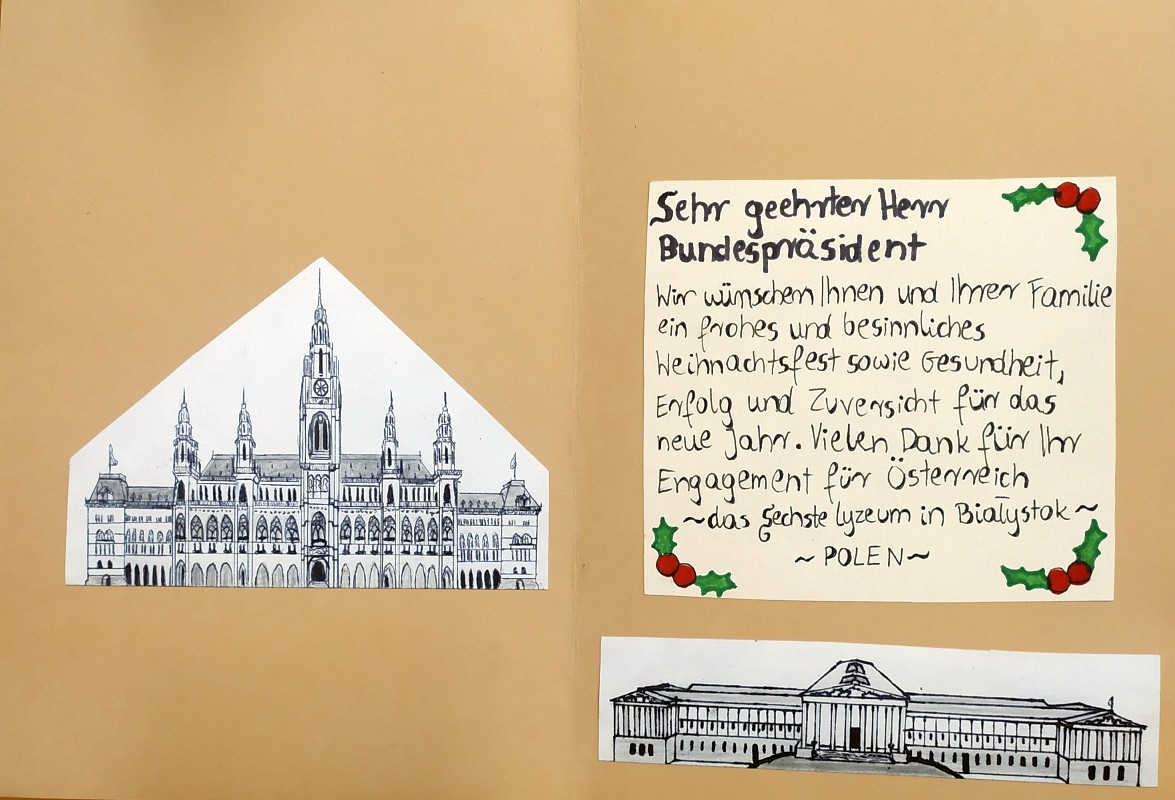 Sehr geehrter Herr
Bundespräsident
Wir wünschen Ihnen und Ihrer Familie
ein frohes und besinnliches
Weihnachtsfest sowie Gesundheit,
Erfolg und Zuversicht für das
neue Jahr. Vielen Dank für Ihr
Engagement für Österreich
~das Sechste Lyzeum in Białystok~
~POLEN~